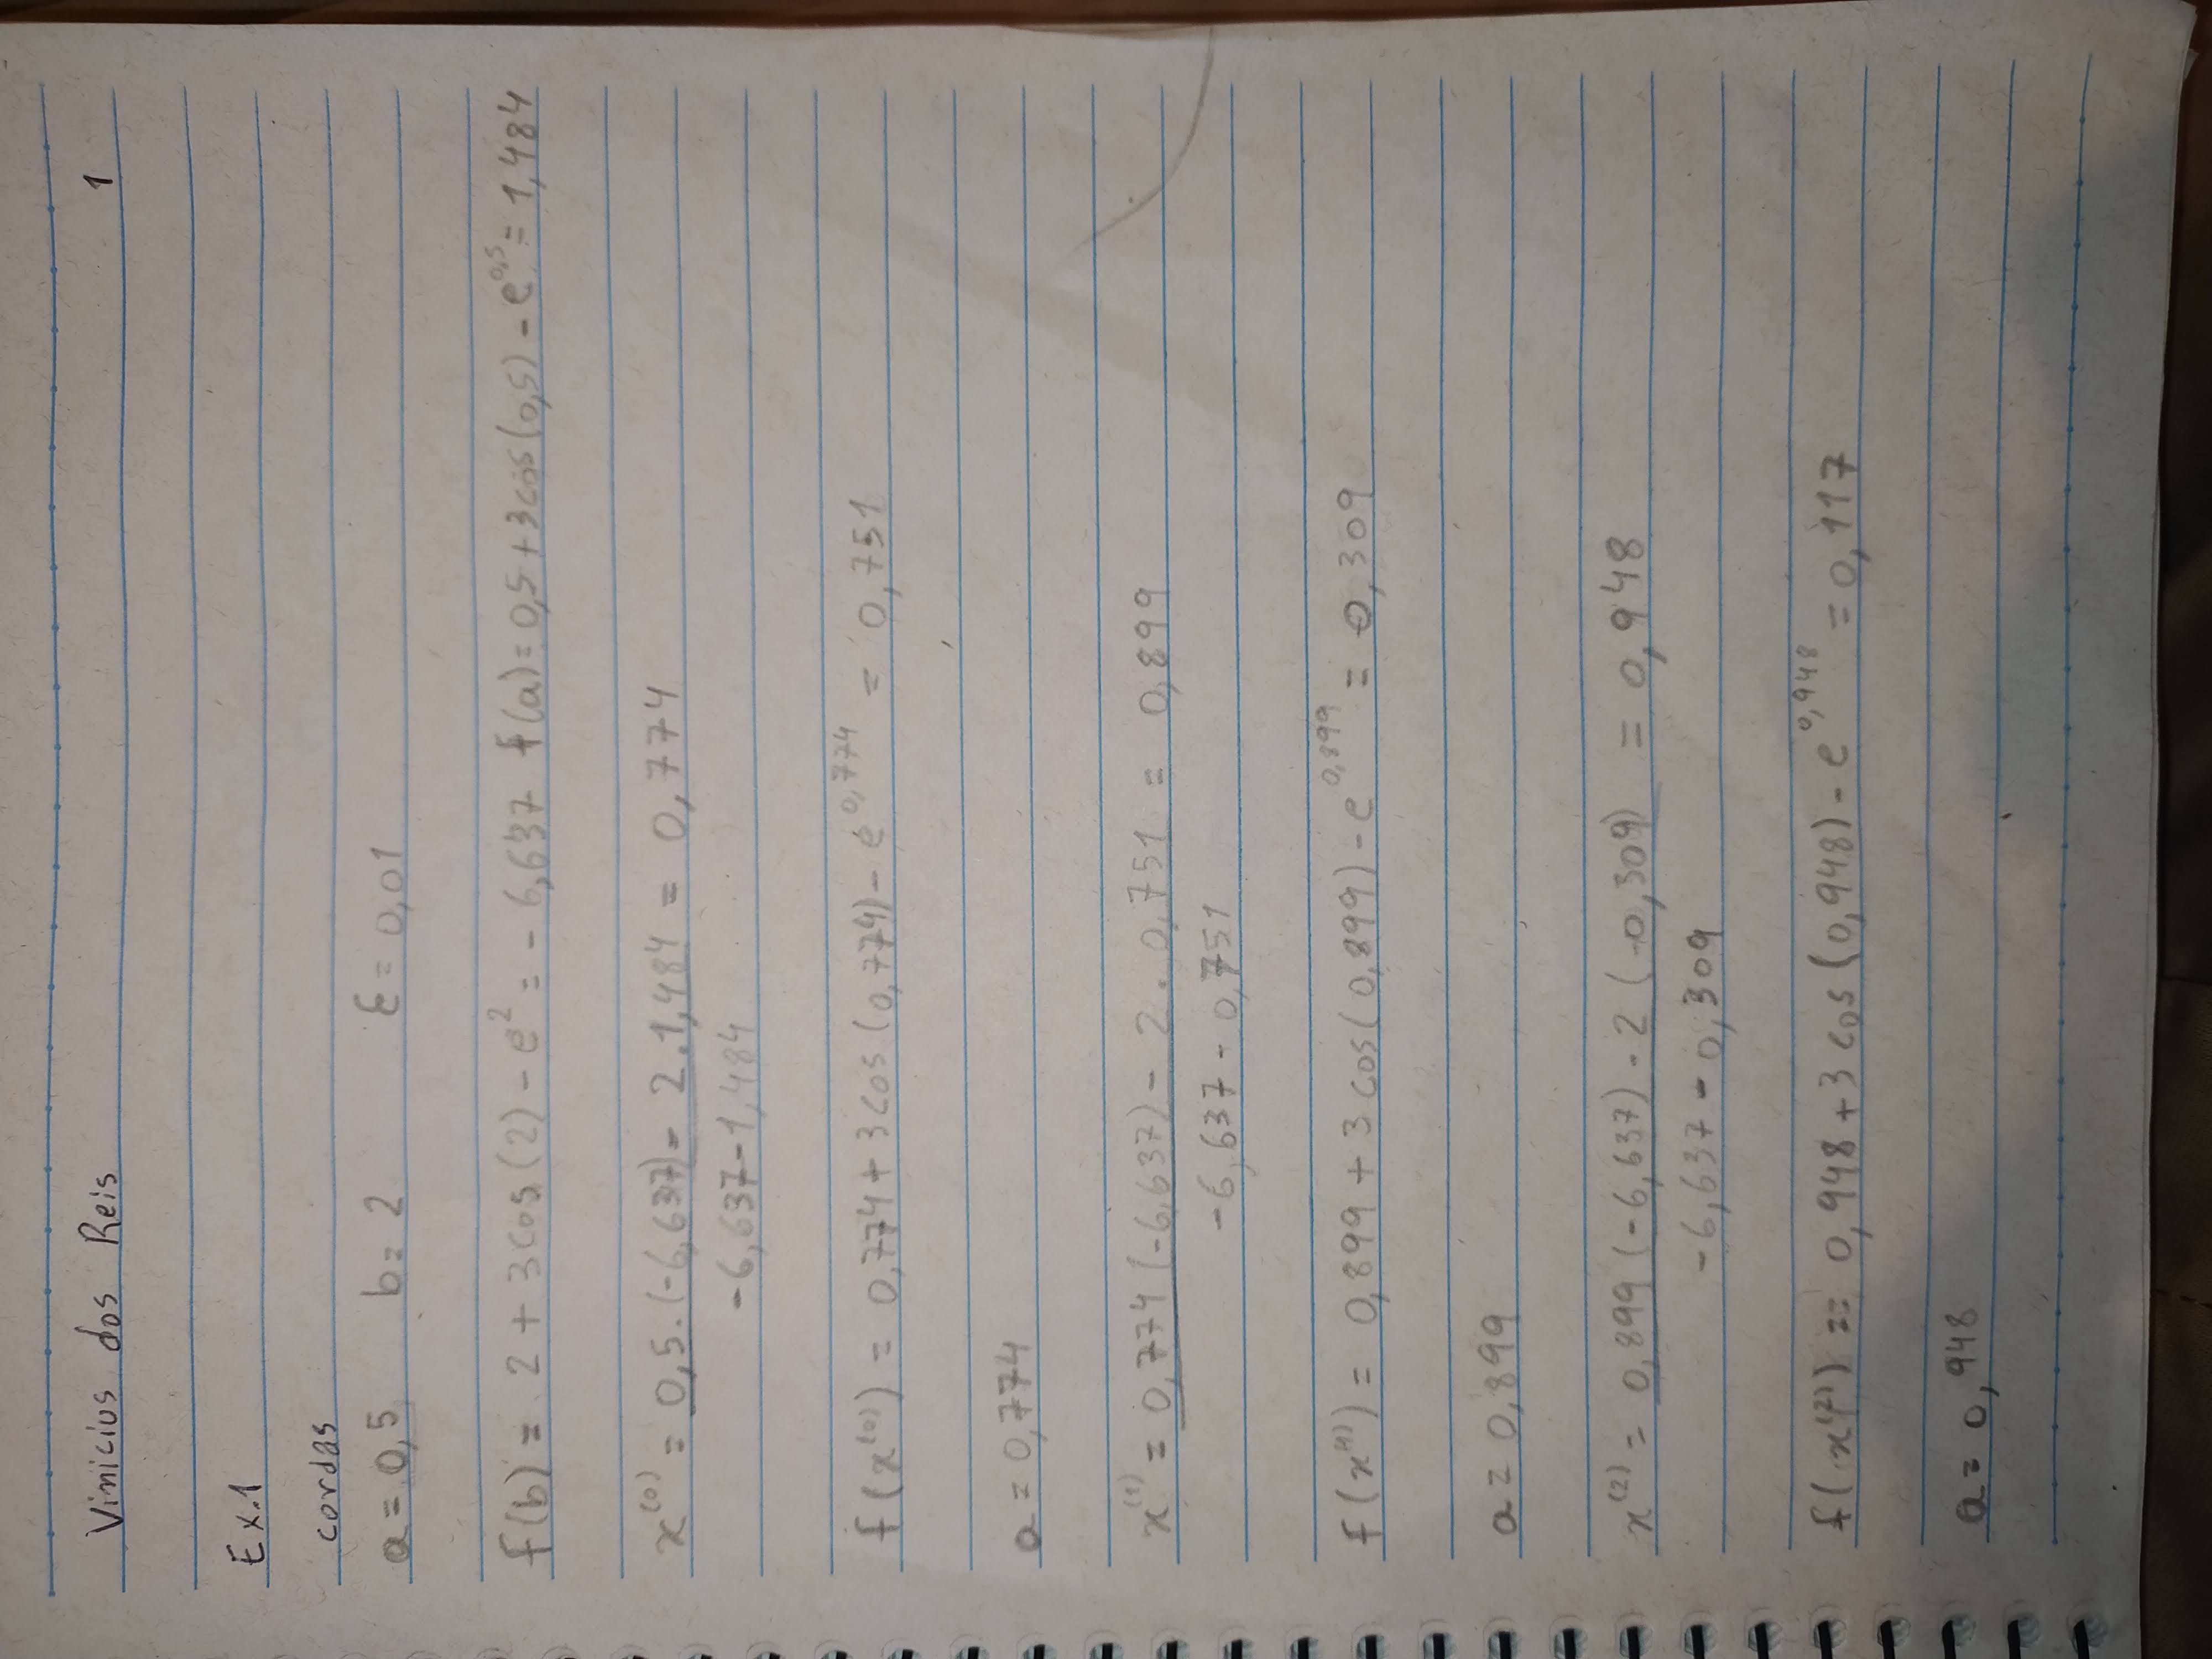 Vinicius dos Reis 1
Ex.1
cordas
a = 0,5 b = 2 ε = 0,01
f(b) = 2 + 3cos(2) - e^2 = - 6,637 f(a) = 0,5 + 3cos(0,5) - e^0,5 = 1,484
x^(0) = 0,5.(-6,637) - 2.1,484 = 0,774
-6,637-1,484
f(x^(0)) = 0,774 + 3cos(0,774) - e^0,774 = 0,751
a = 0,774
x^(1) = 0,774(-6,637) - 2 . 0,751 = 0,899
-6,637 - 0,751
f(x^(1)) = 0,899 + 3 cos(0,899) - e^0,899 = 0,309
a = 0,899
x^(2) = 0,899(-6,637) - 2(-0,309) = 0,948
-6,637 - 0,309
f(x^(2)) == 0,948 + 3 cos(0,948) - e^0,948 = 0,117
a = 0,948